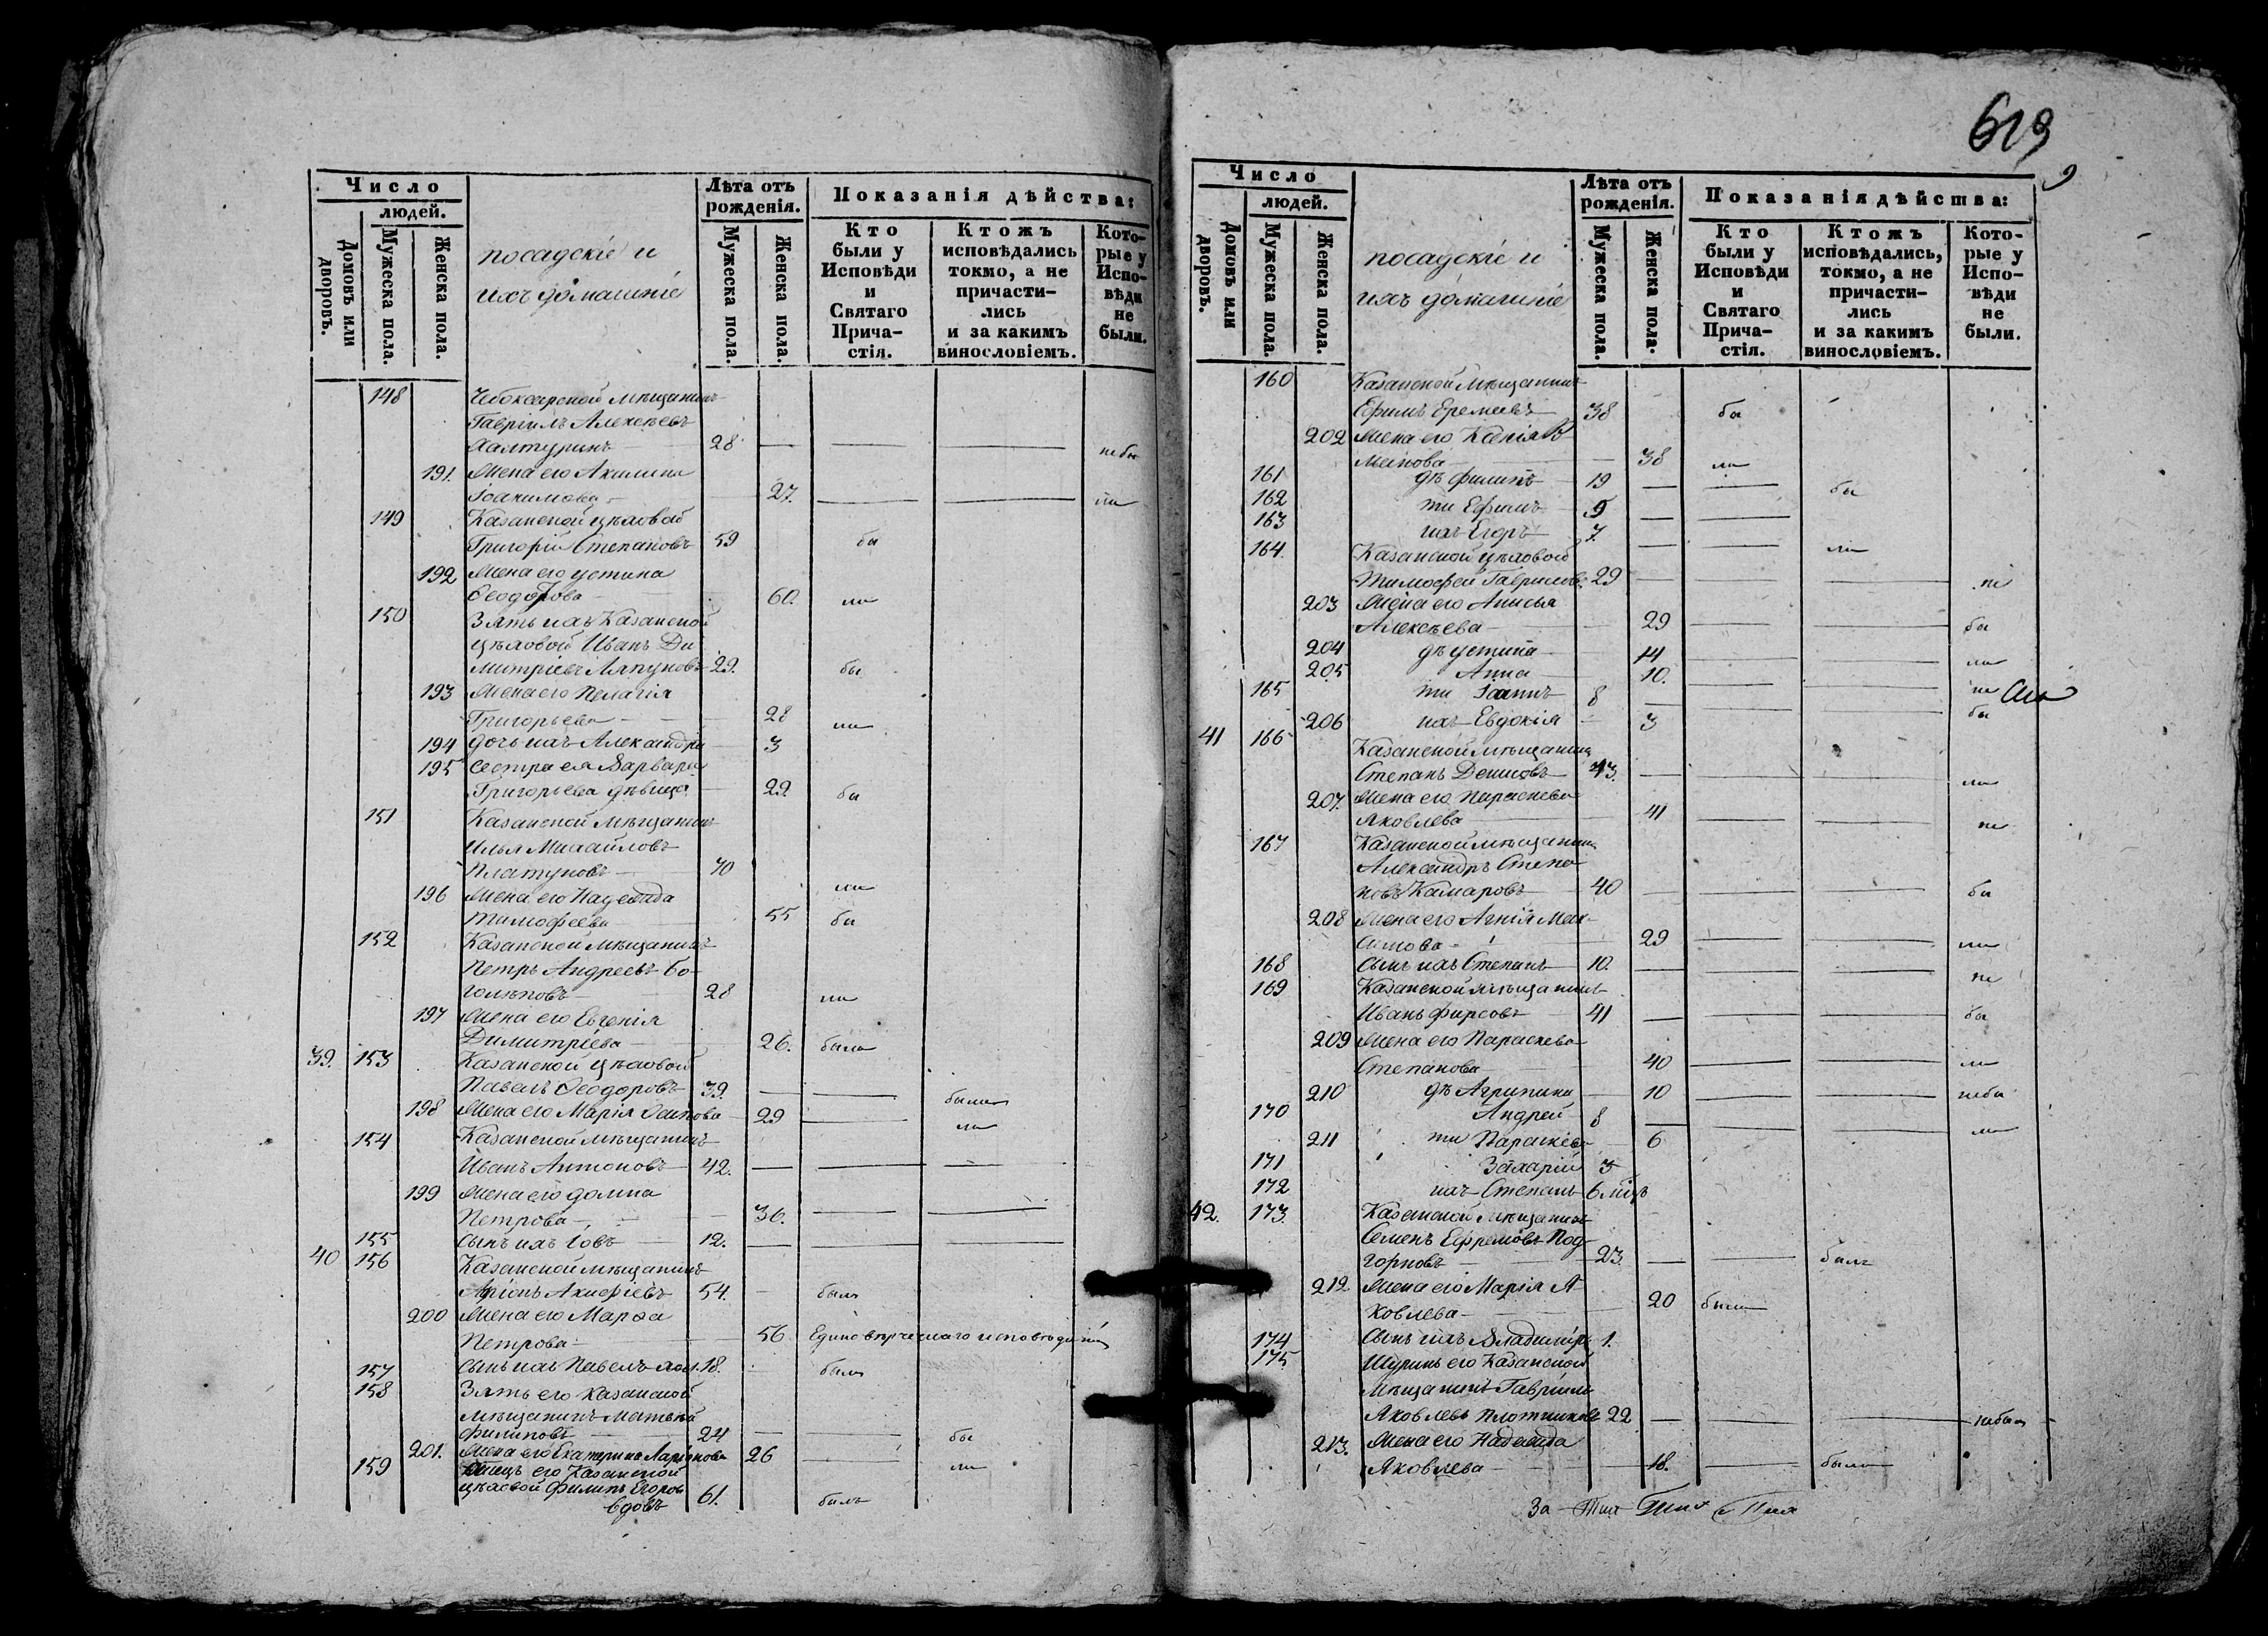 619
9
Число
людей.
Домовъ или дворовъ.
Мужеска пола.
Женска пола.
посадскіе и
ихъ домашніе
Лѣта отъ рожденія.
Мужеска пола.
Женска пола.
Показанія дѣйства:
Кто были у Исповѣди и Святаго Прича-стія.
Ктожъ исповѣдались токмо, а не причасти-лись и за какимъ винословіемъ.
Кото-рые у Испо-вѣди не были.
148 Чебоксарской мѣщанинъ
Гавріилъ Алексѣевъ
Халтуринъ 28 небы
191. Жена его Акилина
Іоакимова 27. ли
149 Казанской цѣховой
Григорій Степановъ 59 бы
192 Жена его Устина
Ѳеодорова 60. ли
150 Зять ихъ Казанской
цѣховой Иванъ Ди
митріевъ Ляпуновъ 29. бы
193 Жена его Пелагія
Григорьева 28 ли
194 Дочь ихъ Александра 3
195 Сестра ея Варвара
Григорьева дѣвица 29. бы
151 Казанской мѣщанинъ
Илья Михайловъ
Платуновъ 70 ли
196 Жена его Надежда
Тимофеева 55 бы
152 Казанской мѣщанинъ
Петръ Андреевъ Бо-
голѣповъ 28 ли
197 Жена его Евгенія
Димитріева 26. была
39. 153 Казанской цѣховой
Павелъ Ѳеодоровъ 39. были
198 Жена его Марія Осипова 29 ли
154 Казанской мѣщанинъ
Иванъ Антоновъ 42.
199 Жена его Домна
Петрова 36.
155 Сынъ ихъ Іовъ 12.
40 156 Казанской мѣщанинъ
Аріонъ Акифіевъ 54. былъ
200 Жена его Марѳа
Петрова 56 Единовѣрческаго исповѣданія
157 Сынъ ихъ Павелъ хол. 18. былъ
158 Зять его Казанской
мѣщанинъ Матвѣй
Филиповъ 24 бы
201. Жена его Екатерина Ларіонова 26 ли
159 Отецъ его Казанской
цѣховой Филипъ Егоровъ
вдовъ 61. былъ
Число
людей.
Домовъ или дворовъ.
Мужеска пола.
Женска пола.
посадскіе и
ихъ домашніе
Лѣта отъ рожденія.
Мужеска пола.
Женска пола.
Показанія дѣйства:
Кто были у Исповѣди и Святаго Прича-стія.
Ктожъ исповѣдались, токмо, а не причасти-лись и за какимъ винословіемъ.
Кото-рые у Испо-вѣди не были.
160 Казанской мѣщанинъ
Ефимъ Еремеевъ 38 бы
202 Жена его Ксенія
38 ли
161 дѣ Филипъ 19 бы
162 ти Ефимъ 9
163 ихъ Егоръ 7. ли
164. Казанской цѣховой
Тимофей Гавриловъ 29 не
203 Жена его Анисья
Алексѣева 29 бы
204 дѣ Устина 14 ли
205 Анна 10. не
165 ти Іоаннъ 8 бы
206 ихъ Евдокія 3
41 166 Казанской мѣщанинъ
Степанъ Денисовъ 43. ли
207. Жена его Параскева
Яковлева 41 не
167 Казанской мѣщанинъ
Александръ Степа
новъ Камаровъ 40 бы
208 Жена его Агнія Мак-
симова 29 ли
168 Сынъ ихъ Степанъ 10. не
169 Казанской мѣщанинъ
Иванъ Фирсовъ 41 бы
209 Жена его Параскева
Степанова 40 ли
210 дѣ Агрипина 10 небы
170 Андрей 8 ли
211 ти Параскева 6
171 Захарій 3
172 ихъ Степанъ 6 мѣц
42. 173. Казанской мѣщанинъ
Семенъ Ефремовъ Под-
горновъ 23. былъ
212 Жена его Марія Я
ковлева 20 была
174 Сынъ ихъ Владиміръ 1.
175 Шуринъ его Казанской
мѣщанинъ Гавріилъ
Яковлевъ Плотниковъ 22 небылъ
213. Жена его Надежда
Яковлева 18. была